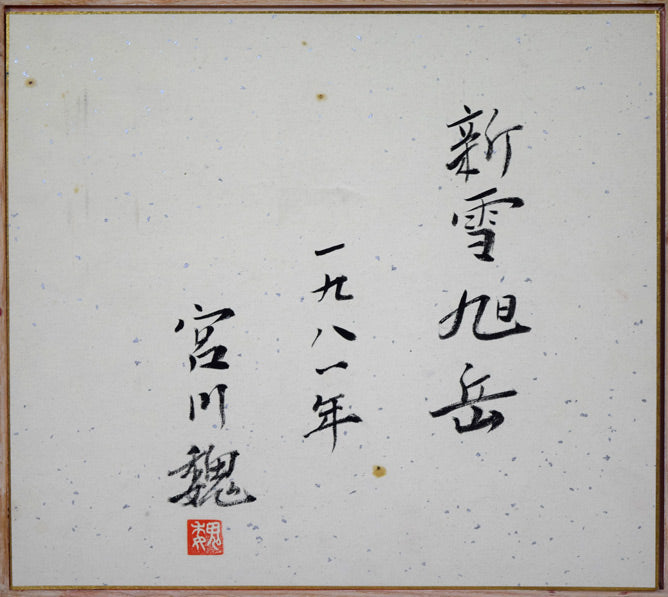 新雪旭岳
一九八一年
宮川魏
魏